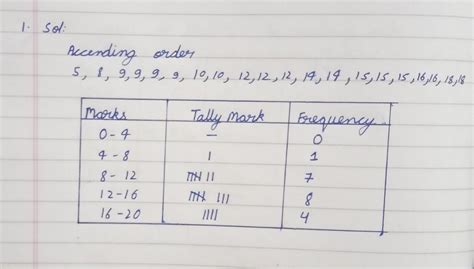 1. Sol:
Accending order
5, 8, 9, 9, 9, 9, 10, 10, 12, 12, 12, 14, 14, 15, 15, 15, 16, 16, 18, 18
Marks Tally Mark Frequency
0-4 — 0
4-8 | 1
8-12 𝍸 || 7
12-16 𝍸 ||| 8
16-20 |||| 4